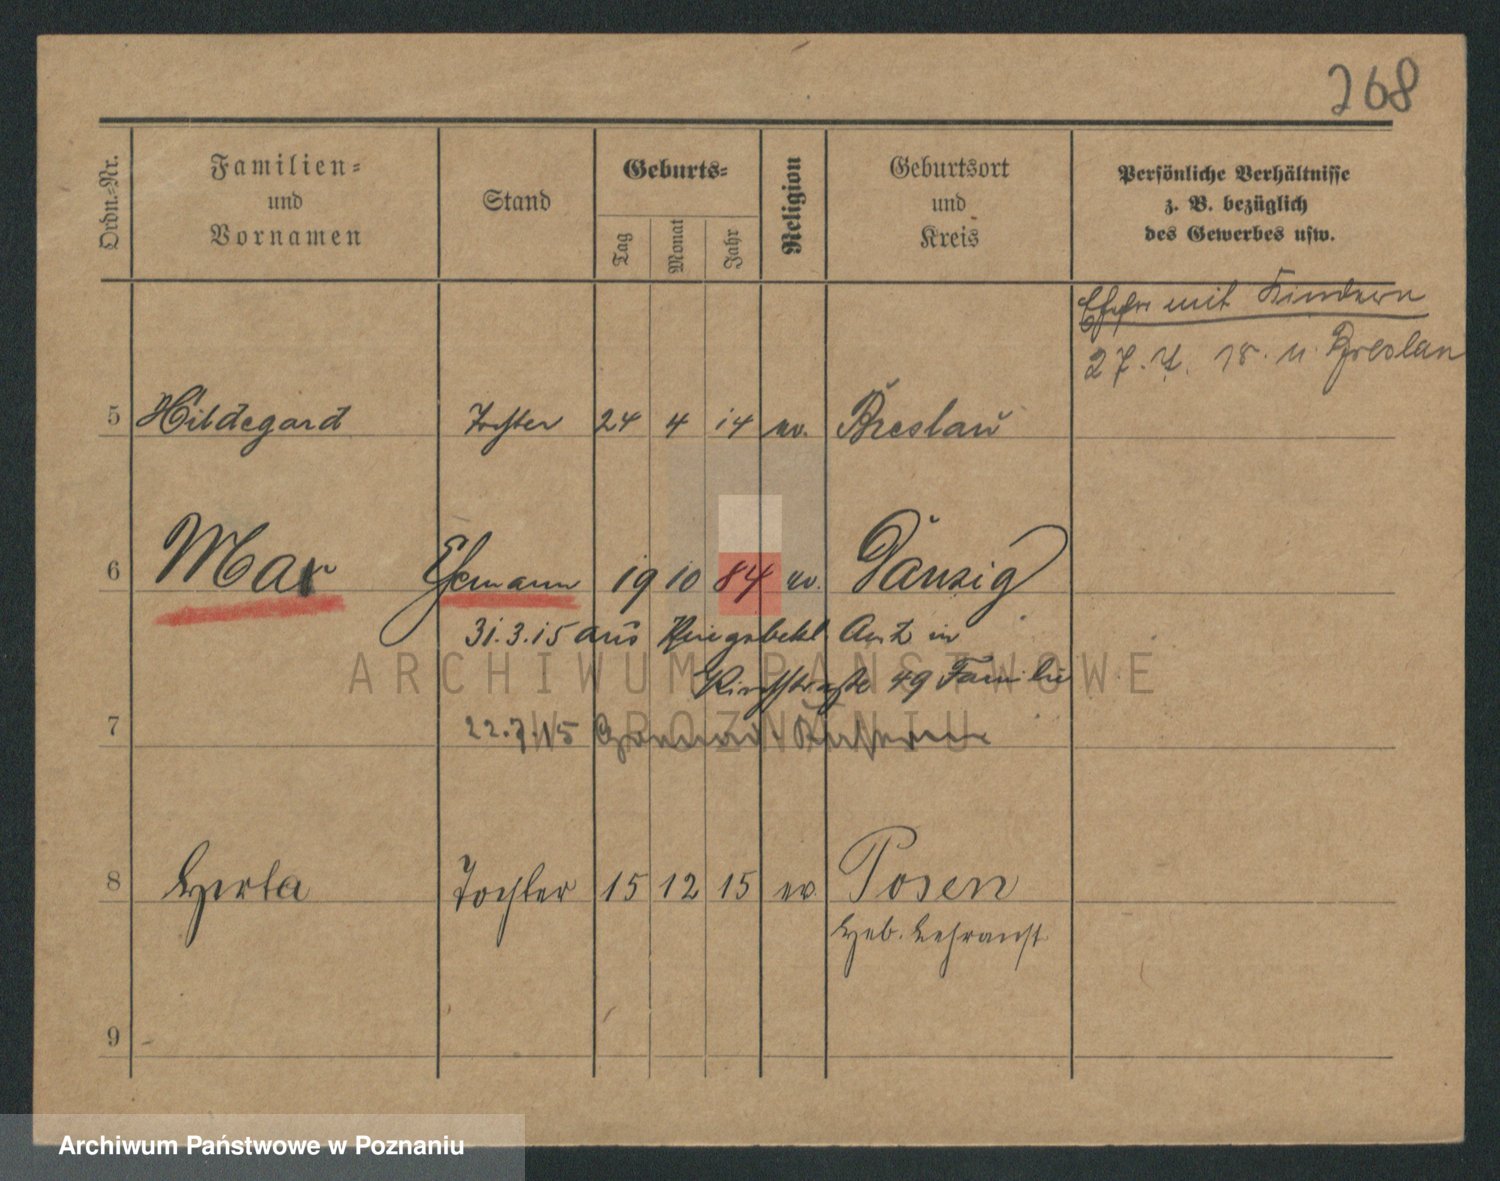 268
Ordn.-Nr.
Familien-
und
Vornamen
Stand
Geburts-
Tag
Monat
Jahr
Religion
Geburtsort
und
Kreis
Persönliche Verhältnisse
z. B. bezüglich
des Gewerbes usw.
mit Kindern
27. 18. n. Breslau
5 Hildegard Tochter 24 4 14 ev. Breslau
6 Max Ehemann 19 10 84 ev. Danzig
31.3.15 aus in
49 Familie
7 22.7.15
8 Herta Tochter 15 12 15 ev Posen
Heb. Lehranst
9
ARCHIWUM PAŃSTWOWE
W POZNANIU
Archiwum Państwowe w Poznaniu